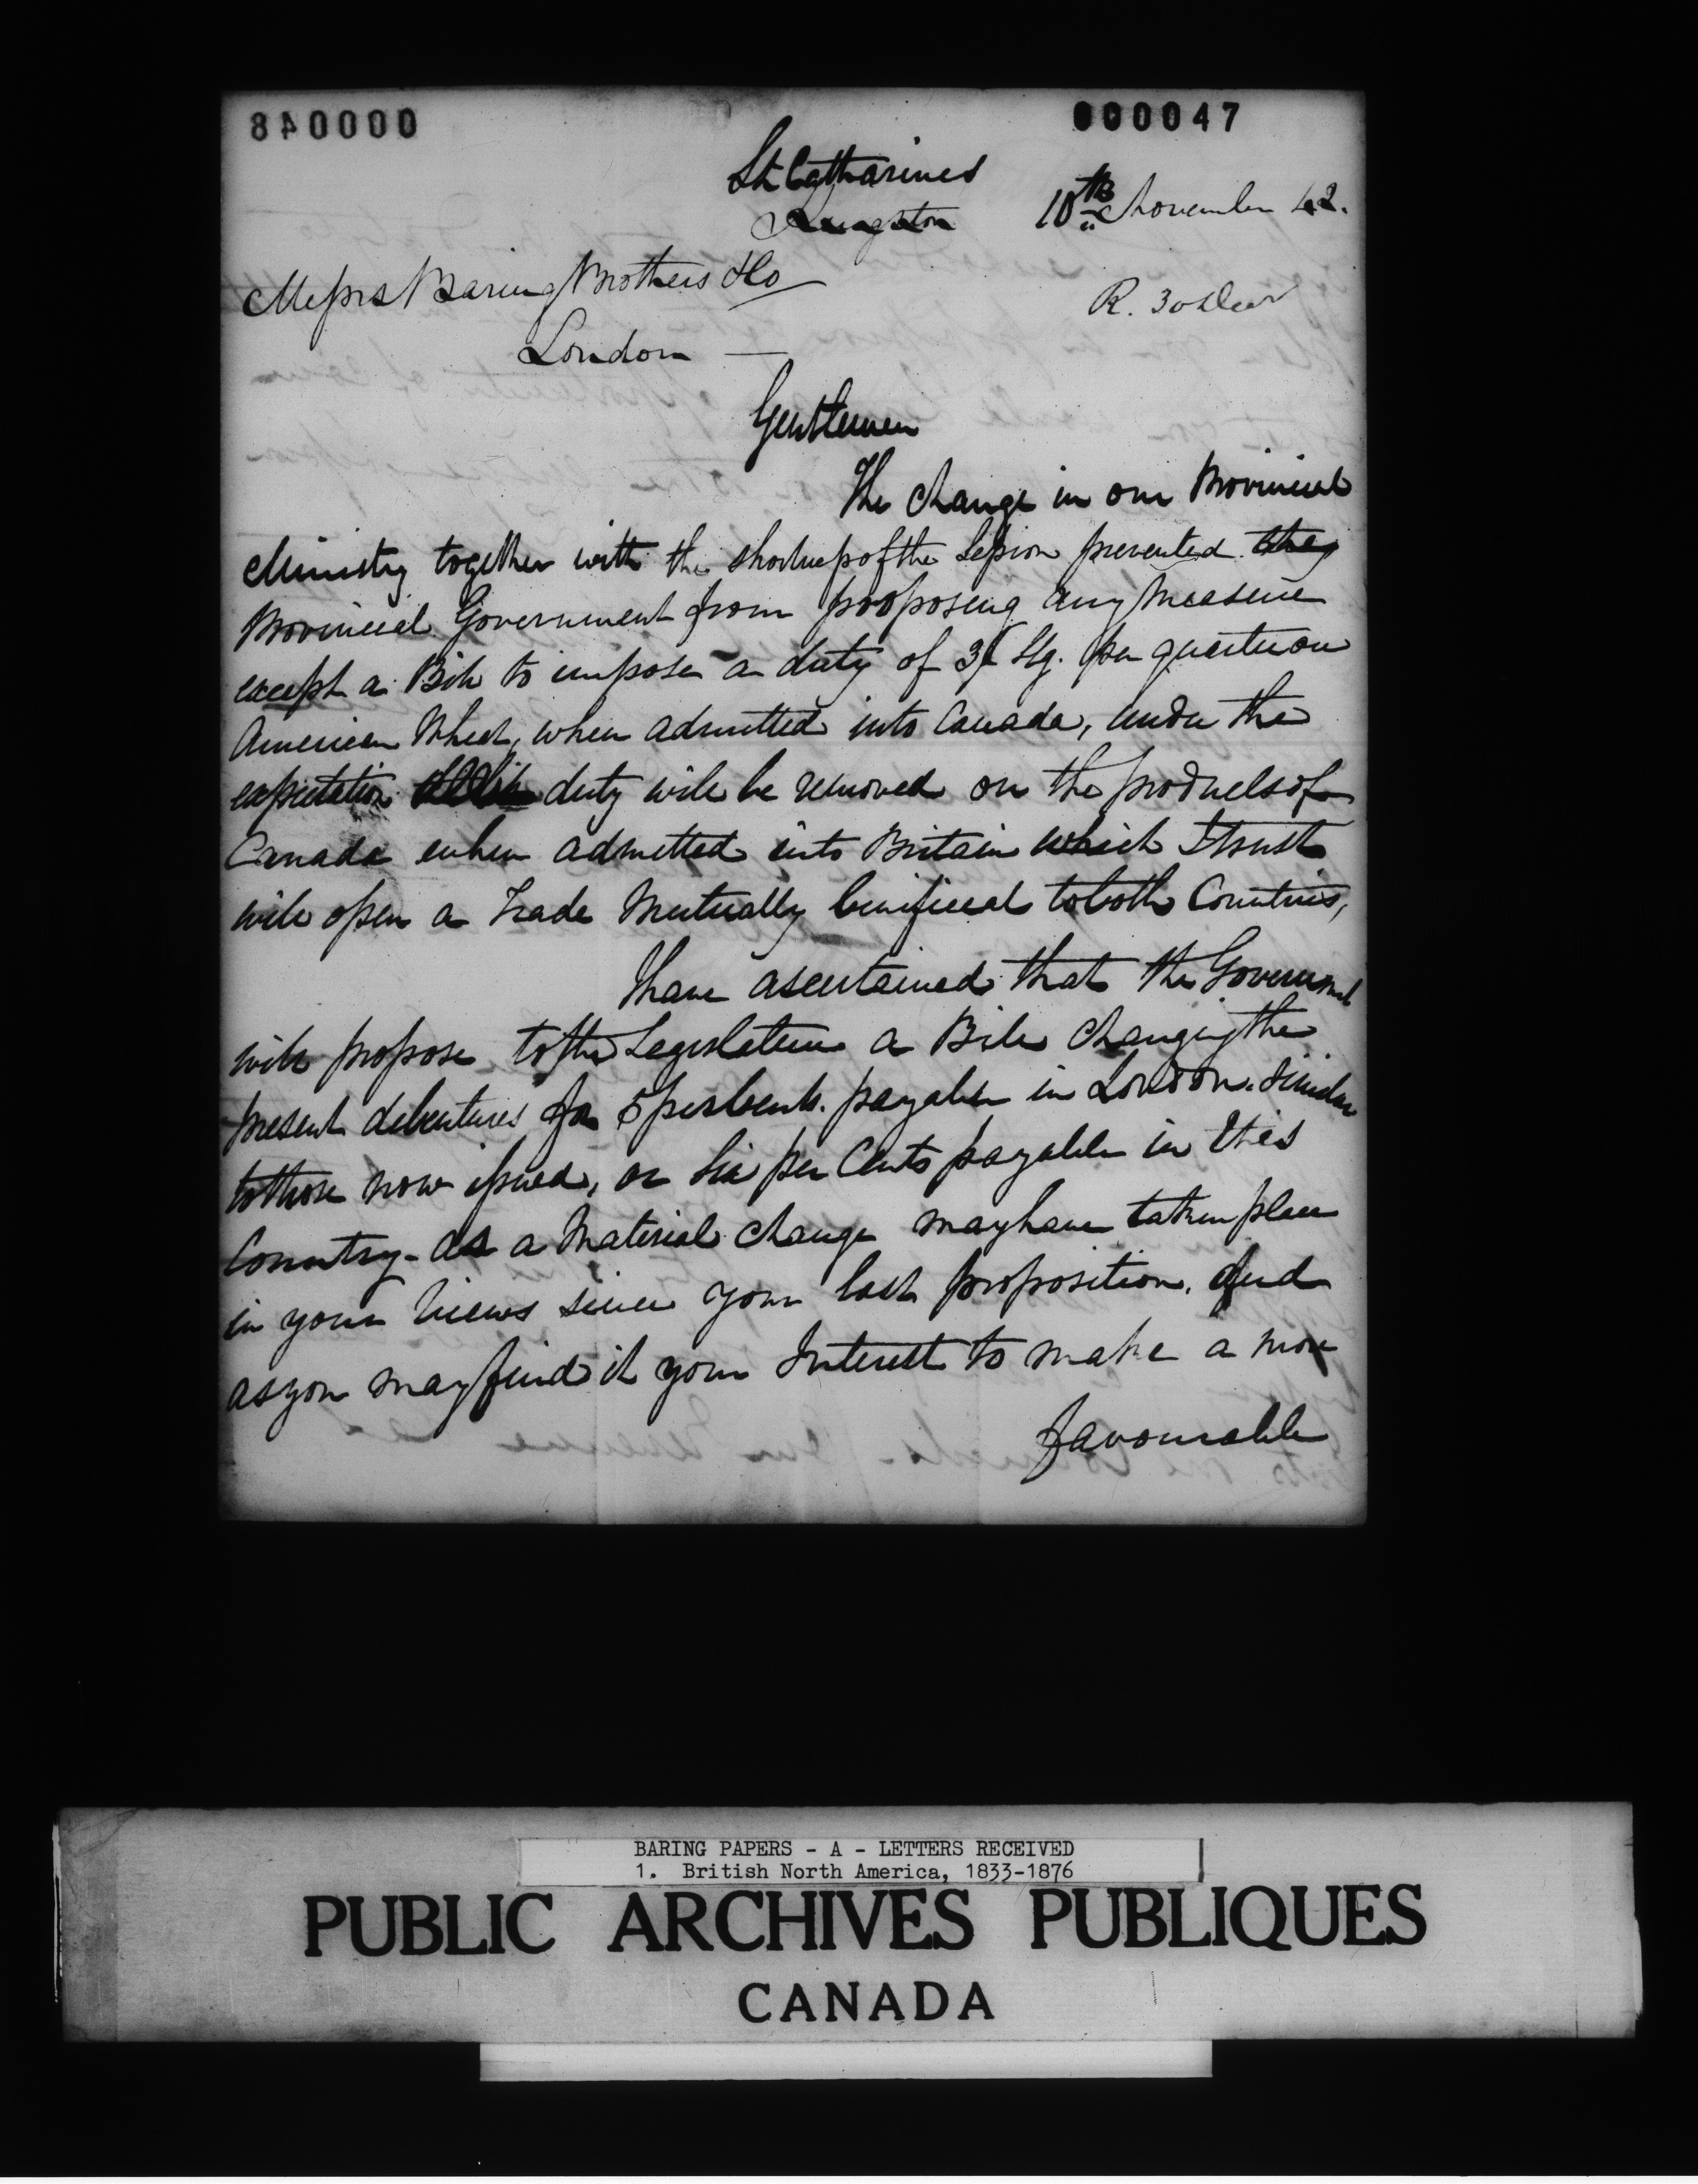 000048
000047
St Catharines
Kingston 10th November 42.
Messrs Baring Brothers & Co
R. 30 Decr
London —
Gentlemen
The change in our Provincial
Ministry together with the shortness of the Session prevented the
Provincial Government from proposing any Measure
except a Bill to impose a duty of 3/ Stg. per quarter on
American Wheat, when admitted into Canada, under the
expectation duty will be removed on the products of
Canada when admitted into Britain which I trust
will open a trade Mutually benificial to both Countries,
I have ascertained that the Government
will propose to the Legislature a Bill changing the
present debentures for 5 per Cents. payable in London. similar
to those now issued, or Six per Cents payable in this
Country - As a Material change may have taken place
in your Views since your last proposition. And
as you may find it your Interest to make a more
favourable
BARING PAPERS - A - LETTERS RECEIVED
1. British North America, 1833-1876
PUBLIC ARCHIVES PUBLIQUES
CANADA